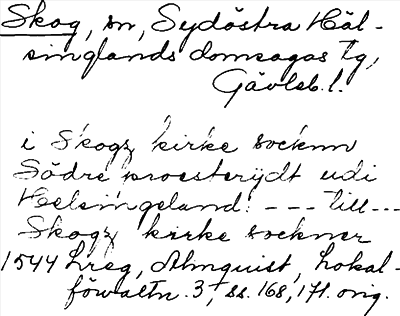 Skog, sn, Sydöstra Häl-
singlands domsagas tg,
Gävleb. l.
i Skogz kirke socknn
Södre proesterijdt udi
Helsingeland: --- till---
Skogz kirke sockner
1544 Lreg, Almquist, Lokal-
förvaltn. 3, ss. 168, 171. orig.